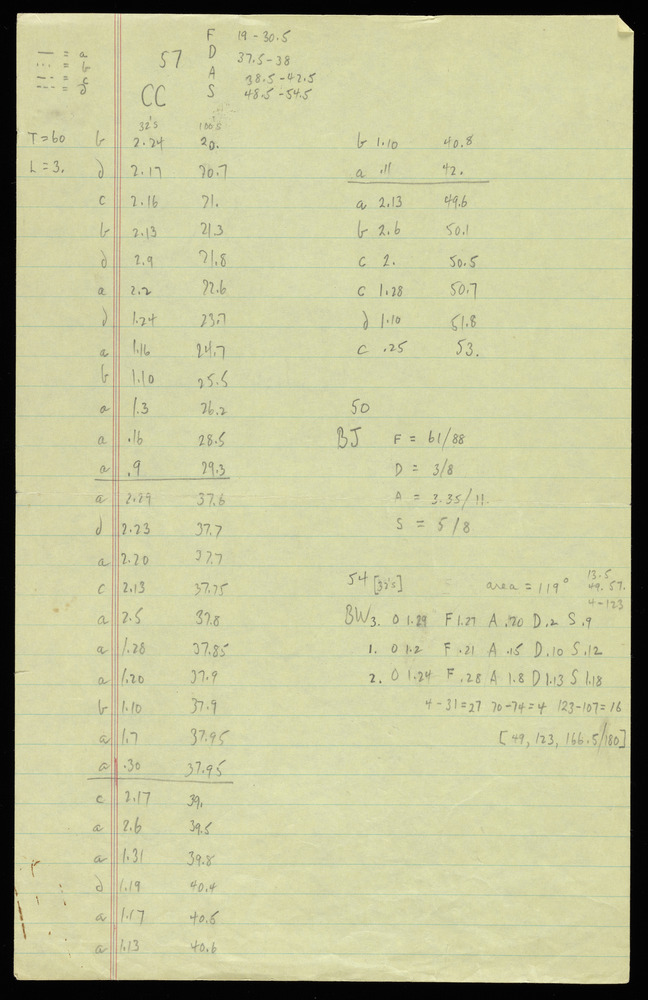 — = a
... = b
–·– = c
--- = d
57
CC
F 19-30.5
D 37.5-38
A 38.5-42.5
S 48.5-54.5
T=60
L=3.
32's 100's
b 2.24 20.
d 2.17 20.7
c 2.16 21.
b 2.13 21.3
d 2.9 21.8
a 2.2 22.6
d 1.24 23.7
a 1.16 24.7
b 1.10 25.5
a 1.3 26.2
a .16 28.5
a .9 29.3
a 2.29 37.6
d 2.23 37.7
a 2.20 37.7
c 2.13 37.75
a 2.5 37.8
a 1.28 37.85
a 1.20 37.9
b 1.10 37.9
a 1.7 37.95
a .30 37.95
c 2.17 39.
a 2.6 39.5
a 1.31 39.8
d 1.19 40.4
a 1.17 40.5
a 1.13 40.6
b 1.10 40.8
a .11 42.
a 2.13 49.6
b 2.6 50.1
c 2. 50.5
c 1.28 50.7
d 1.10 51.8
c .25 53.
50
BJ F = 61/88
D = 3/8
A = 3.35/11.
S = 5/8
54 [32's] area = 119° 13.5
49.57.
4-123
BW 3. O 1.29 F 1.27 A .20 D .2 S .9
1. O 1.2 F .21 A .15 D .10 S .12
2. O 1.24 F .28 A 1.8 D 1.13 S 1.18
4-31=27 70-74=4 123-107=16
[49, 123, 166.5/180]